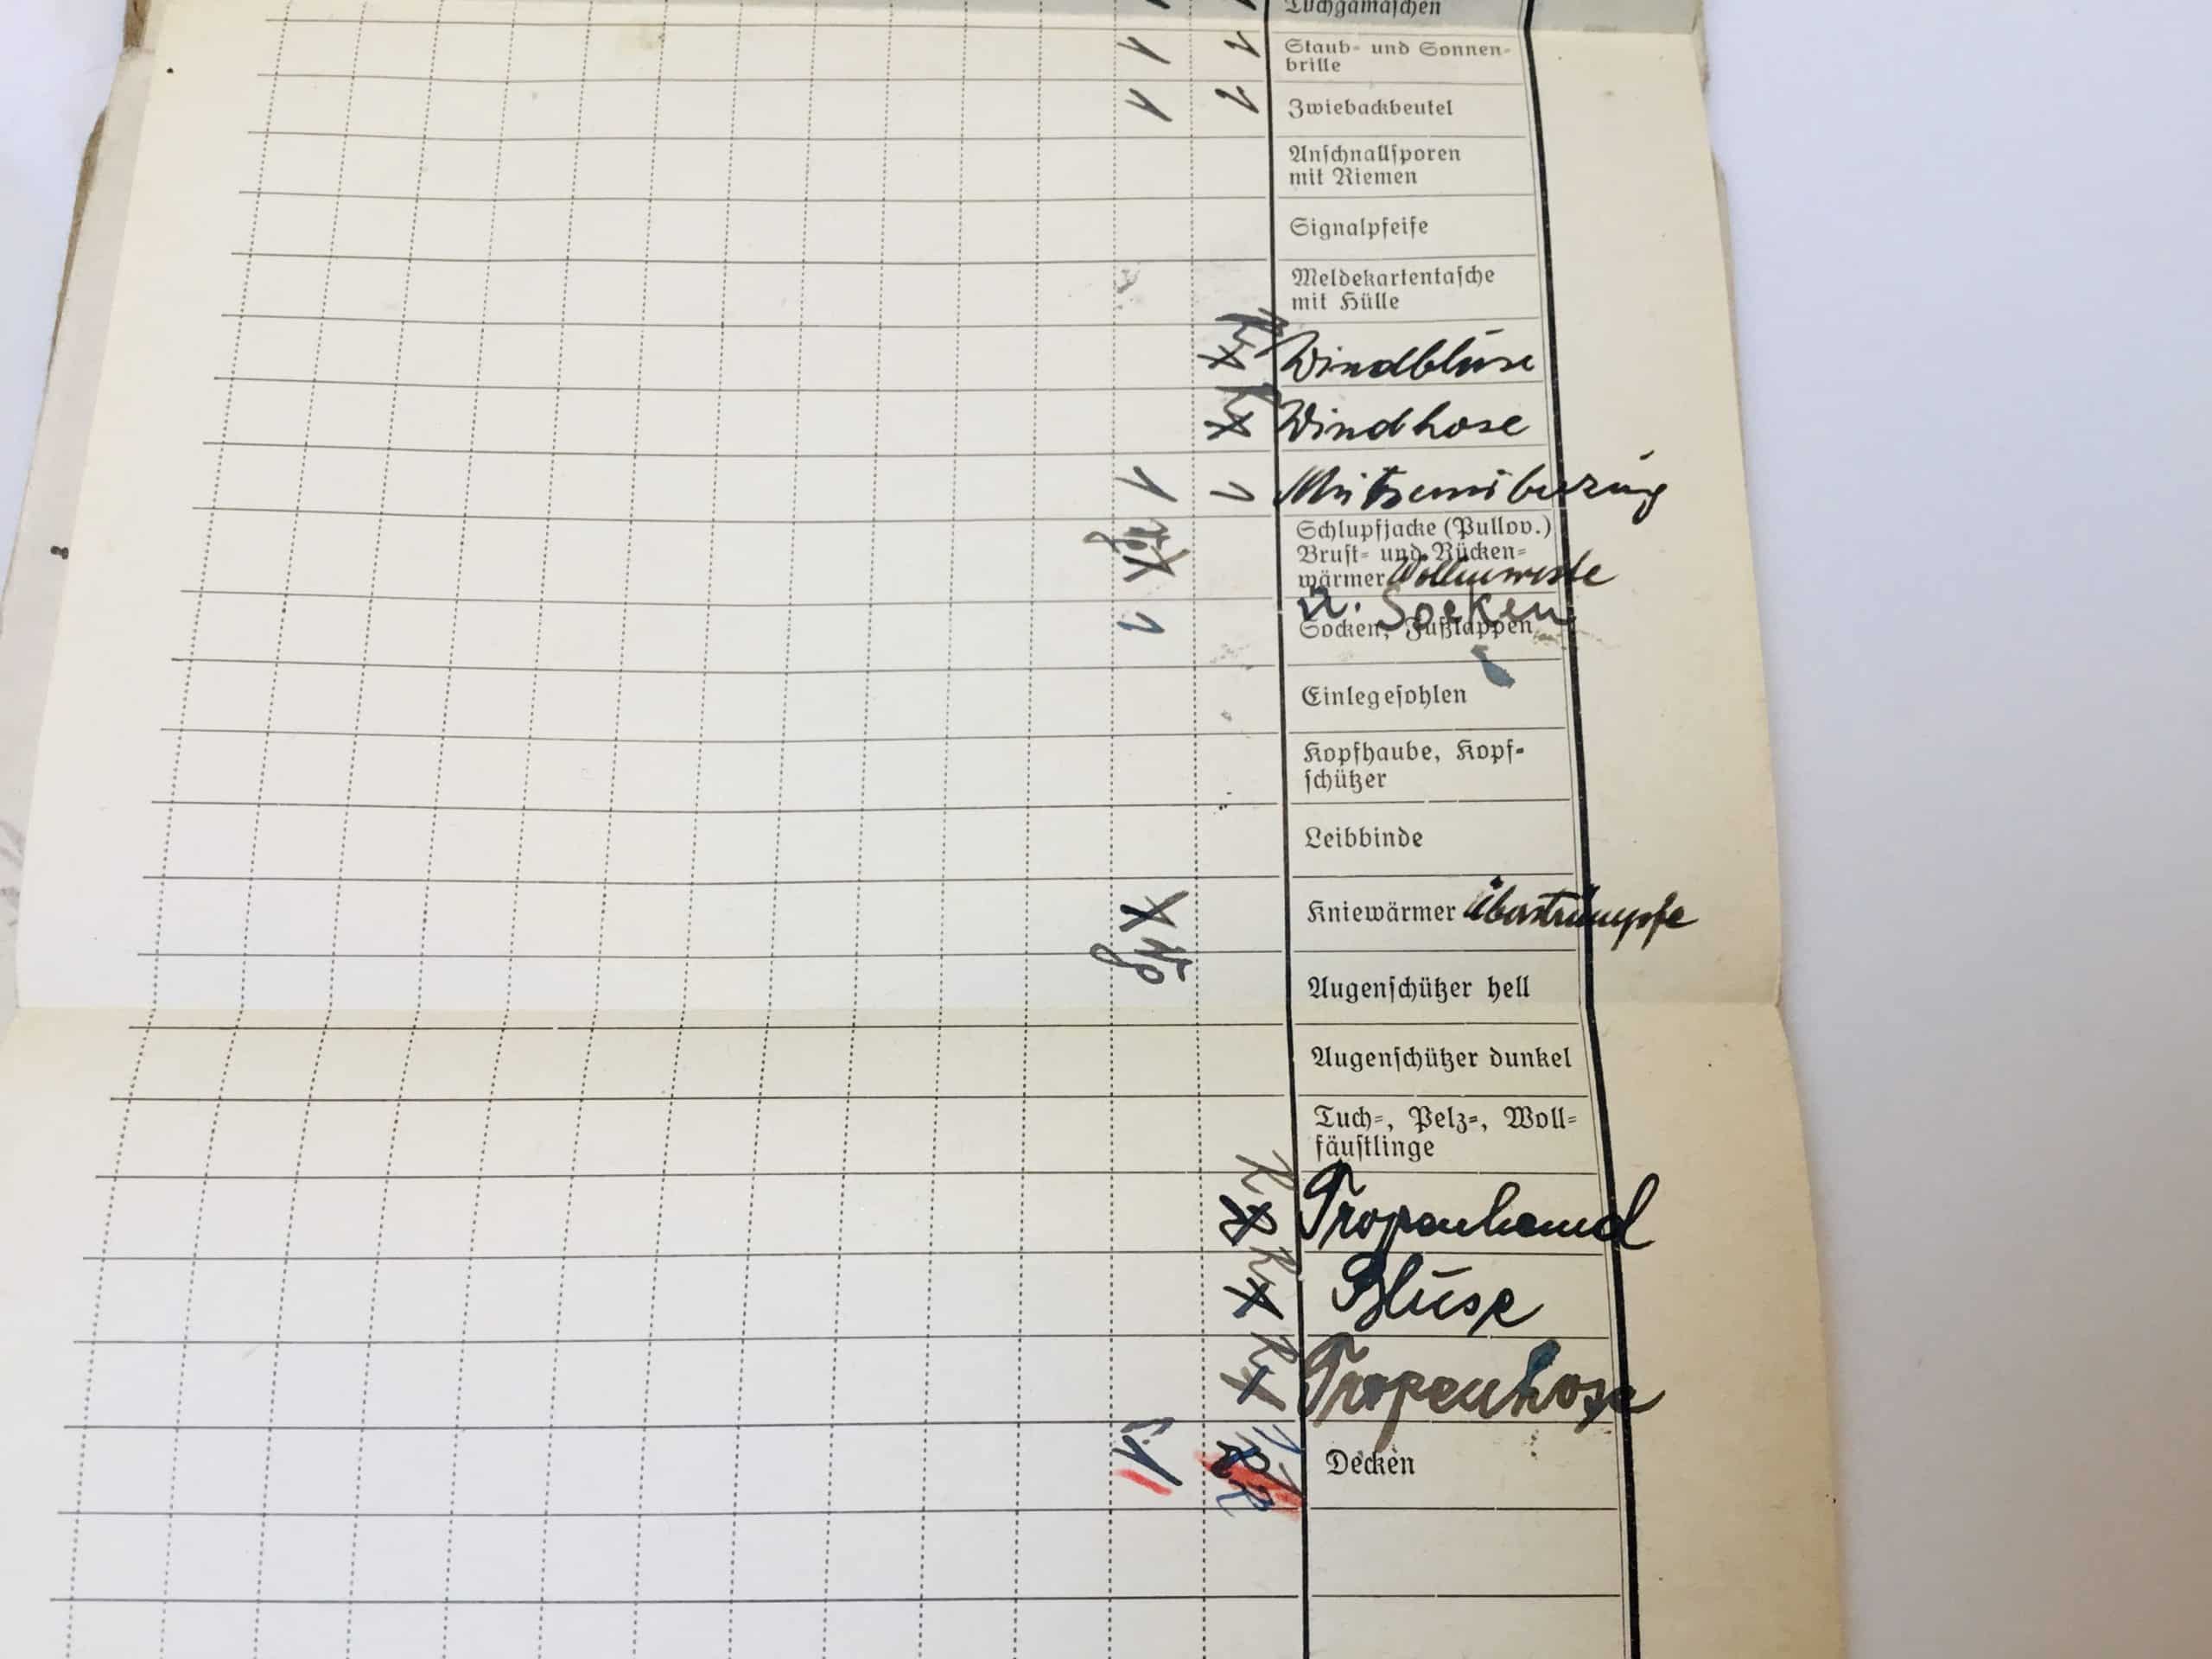 Tuchgamaschen
Staub- und Sonnen-
brille
1 1
Zwiebackbeutel
1 1
Anschnallsporen
mit Riemen
Signalpfeife
Meldekartentasche
mit Hülle
Windblüse
Windhose
Mützenüberzüg
1 1
Schlupfjacke (Pullov.)
Brust- und Rücken-
wärmer Wollenweste
ü. Socken
Socken, Fußlappen
1
Einlegesohlen
Kopfhaube, Kopf-
schützer
Leibbinde
Kniewärmer Überstrümpfe
Augenschützer hell
Augenschützer dunkel
Tuch-, Pelz-, Woll-
fäustlinge
Tropenhemd
Blüse
Tropenhose
Decken
1